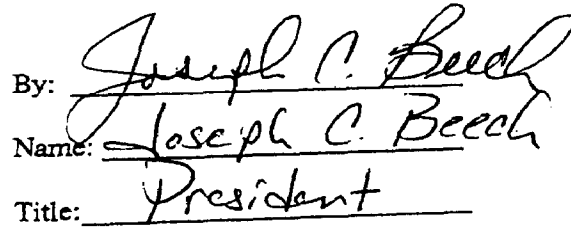 By: Joseph C. Beech
Name: Joseph C. Beech
Title: President